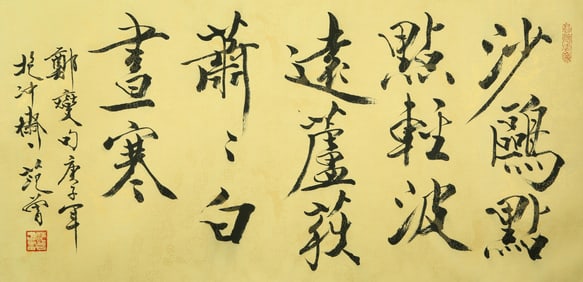 沙鷗點
點輕波
遠蘆荻
蕭〻白
晝寒
鄭燮句庚子年
抱冲范曾